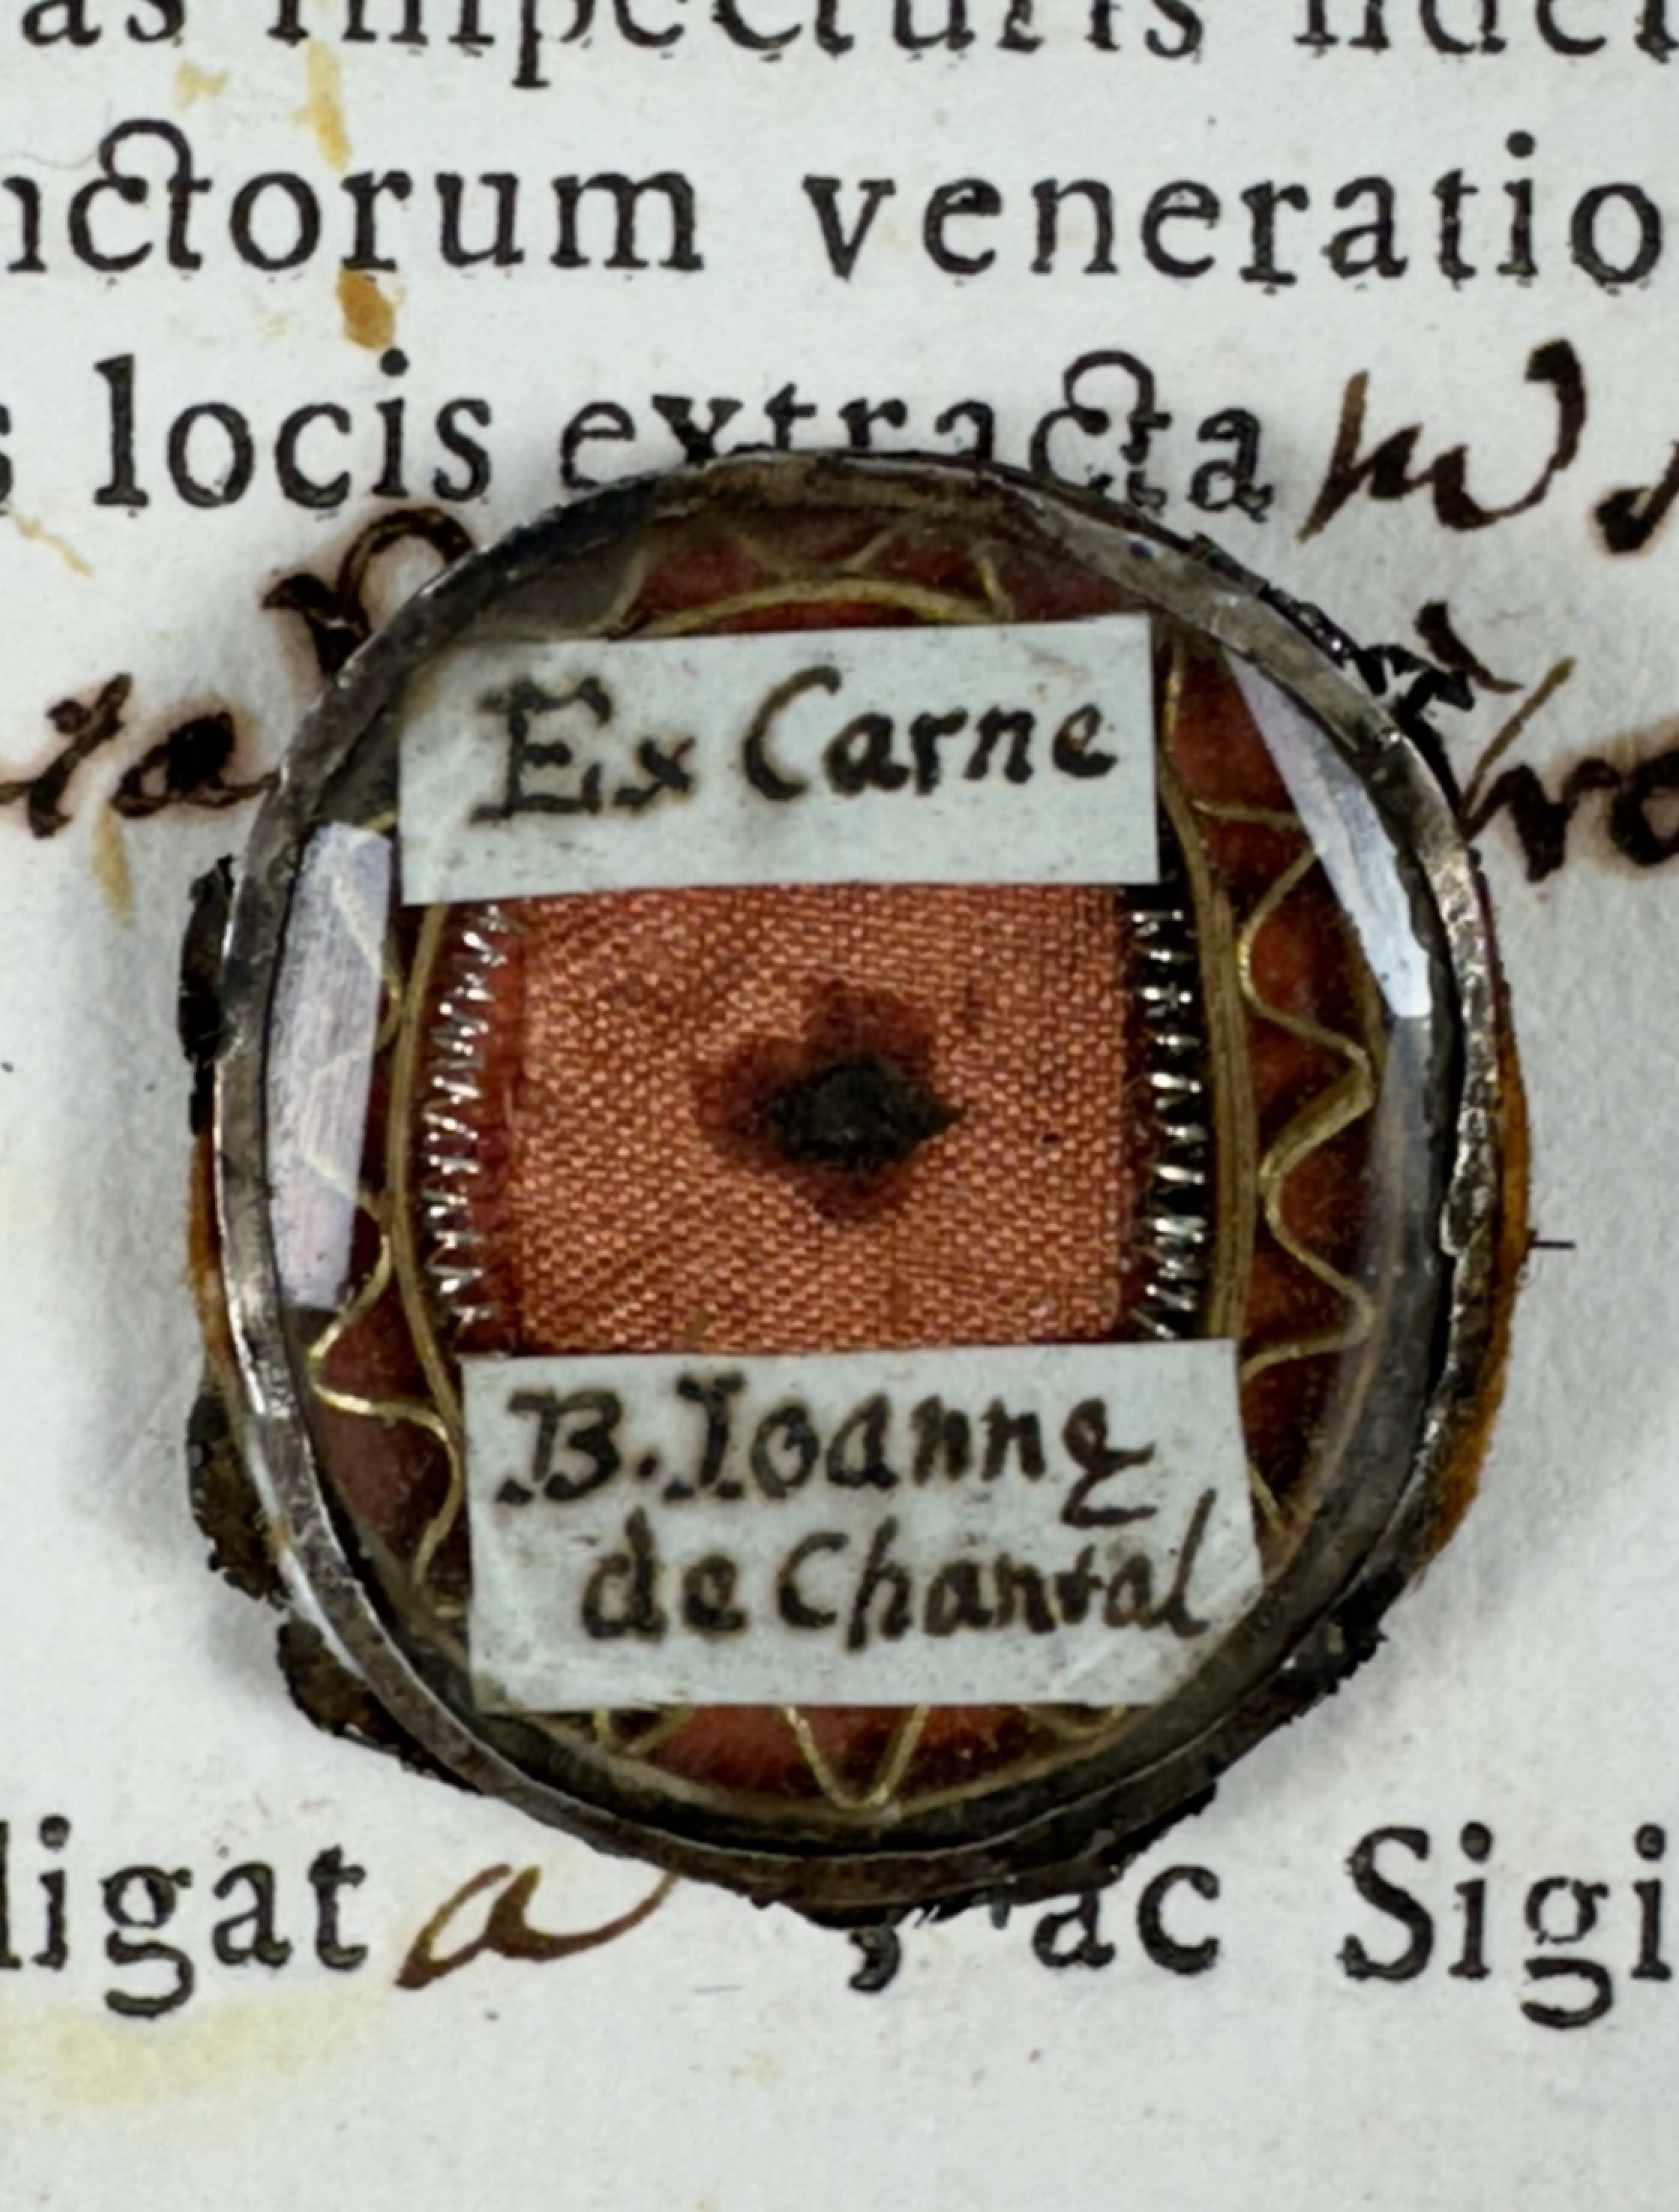 as impecturis fidel
nctorum veneratio
s locis extracta m
ta
Ex Carne
B. Ioannę
de Chantal
ligat a , ac Sigi